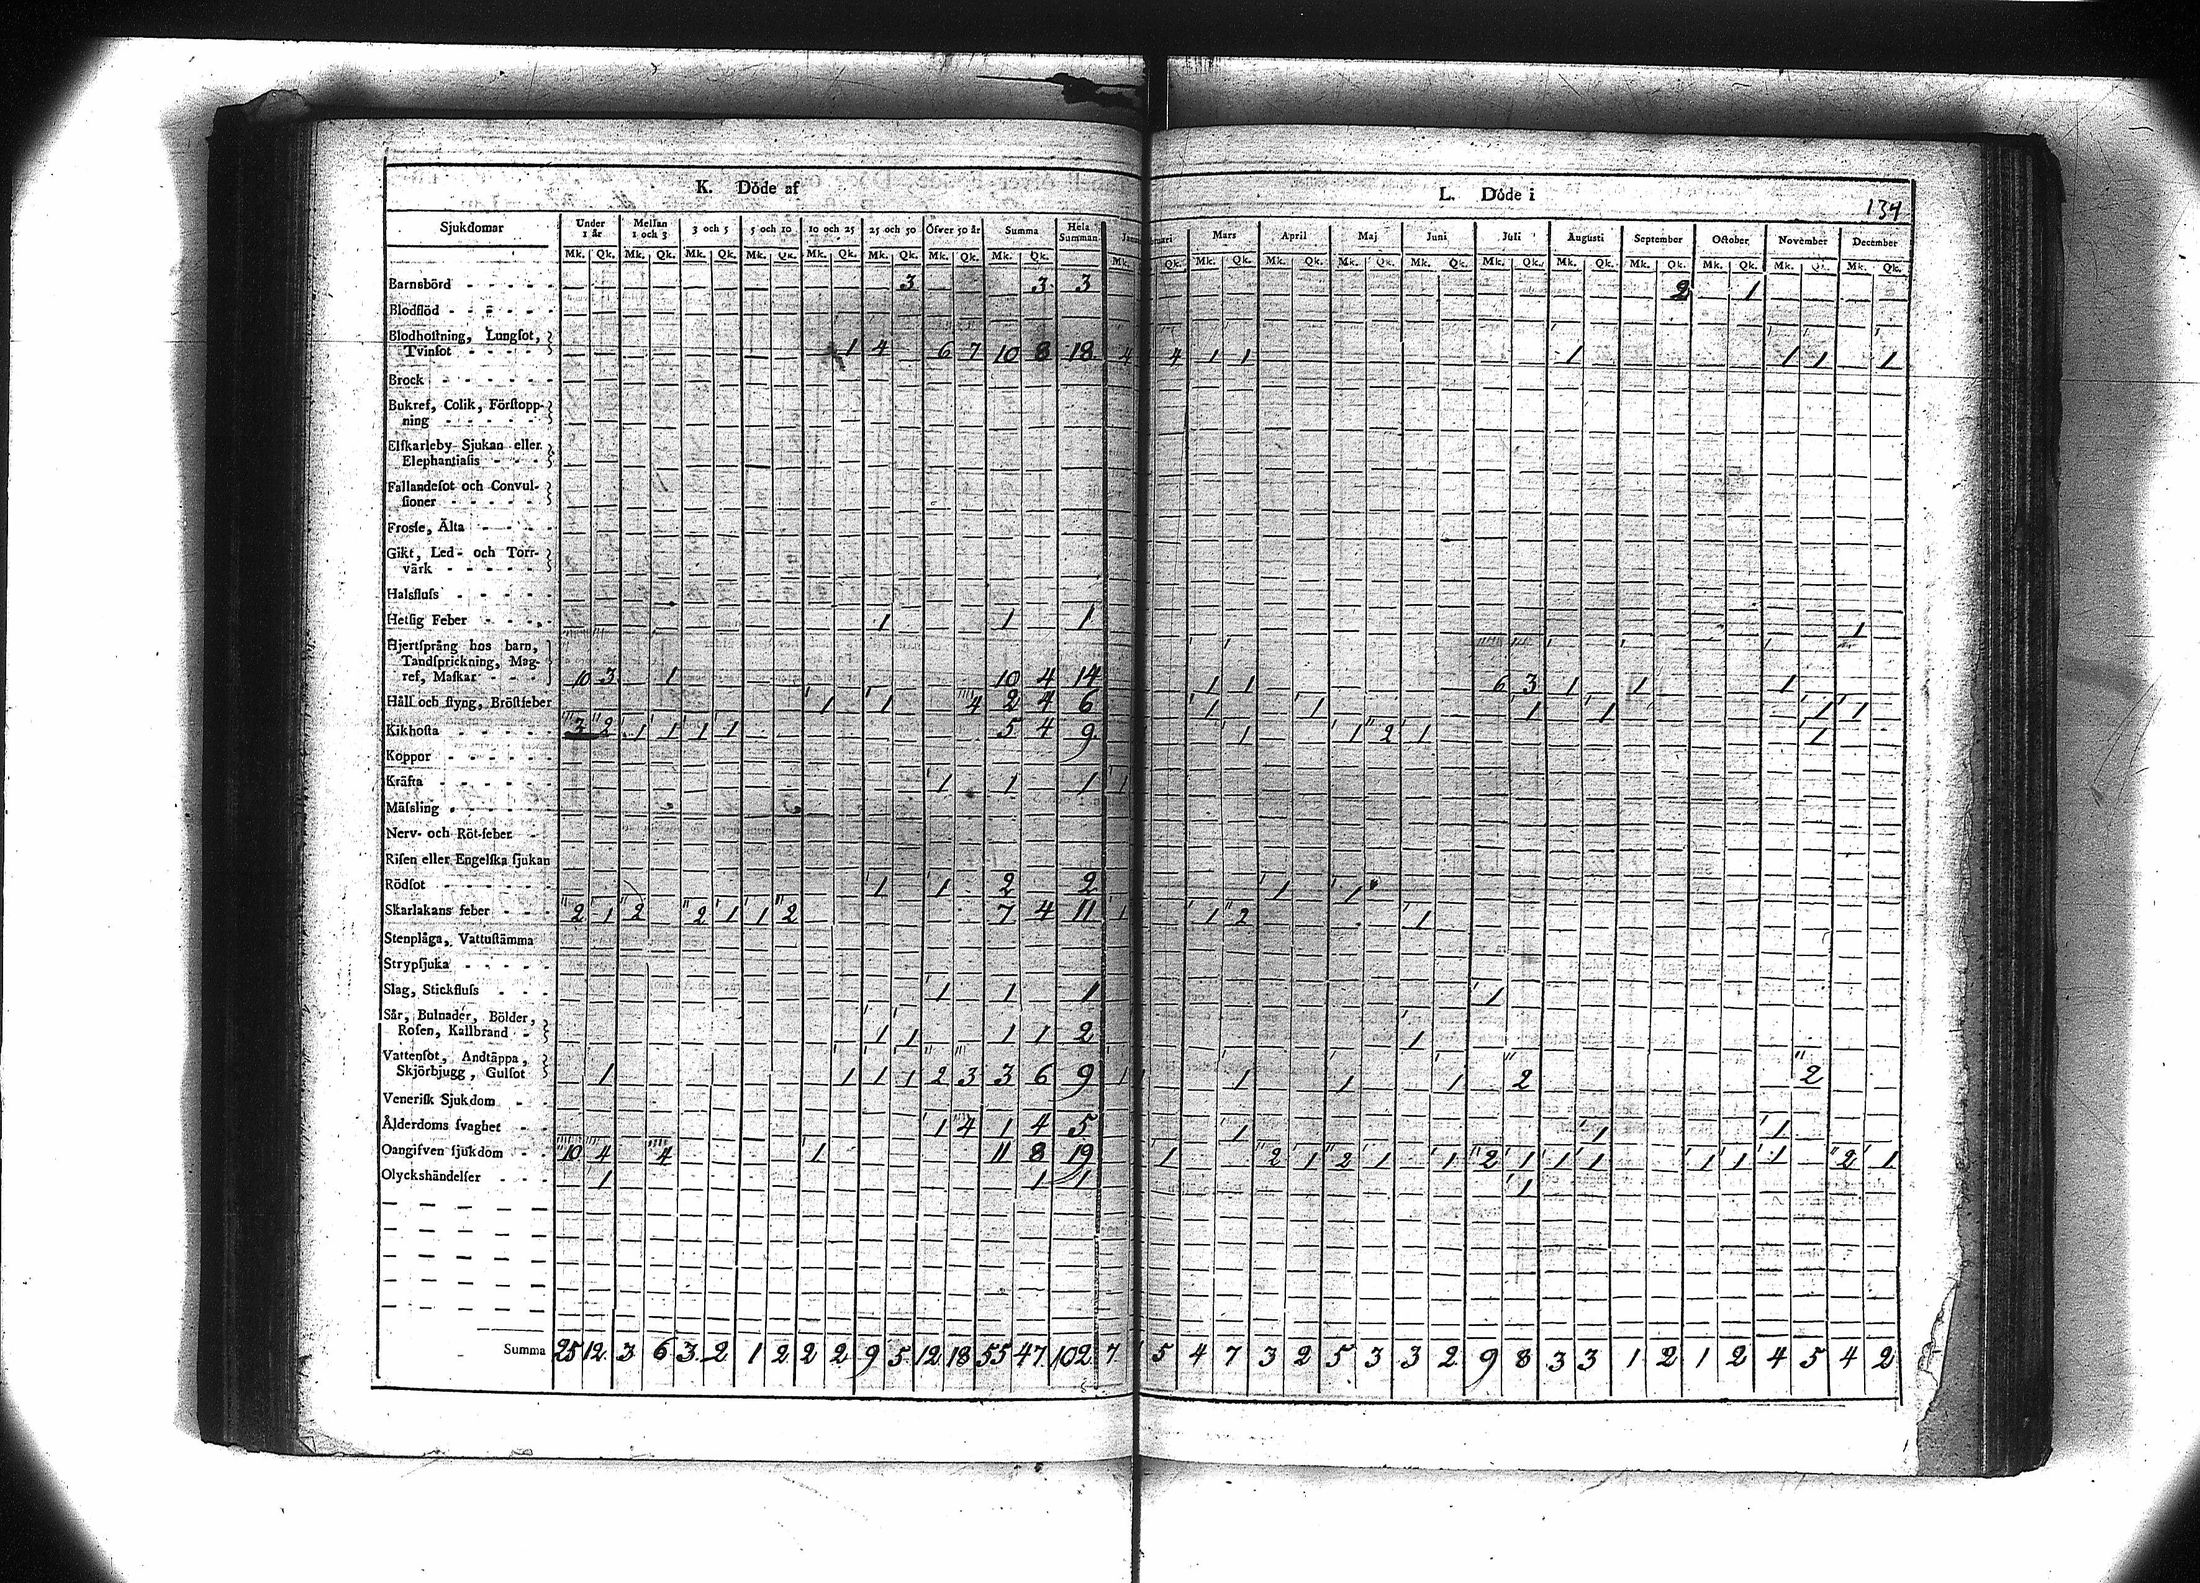 K. Döde af
L. Döde i
134
Sjukdomar Under 1 år Mellan 1 och 3 3 och 5 5 och 10 10 och 25 25 och 50 Öfver 50 år Summa Hela Summan Mars April Maj Juni Juli Augusti September October November December
Mk. Qk. Mk. Qk. Mk. Qk. Mk. Qk. Mk. Qk. Mk. Qk. Mk. Qk. Mk. Qk. Mk. Qk. Mk. Qk. Mk. Qk. Mk. Qk. Mk. Qk. Mk. Qk. Mk. Qk. Mk. Qk. Mk. Qk. Mk. Mk. Qk.
Barnsbörd 3 3 3 2 1
Blodflöd
Blodhoſtning, Lungſot,
Tvinſot 1 4 6 7 10 8 18 4 4 1 1 1 1 1 1
Brock
Bukref, Colik, Förſtopp-
ning
Elſkarleby Sjukan eller
Elephantiaſis
Fallandeſot och Convul-
ſioner
Frosſe, Älta
Gikt, Led- och Torr-
värk
Halsfluſs
Hetſig Feber 1 1 1 1
Hjertſprång hos barn,
Tandſprickning, Mag-
ref, Maſkar 10 3 1 10 4 14 1 1 6 3 1 1 1
Håll och ſtyng, Bröſtfeber 1 1 4 2 4 6 1 1 1 1 1 1
Kikhoſta 3 2 1 1 1 1 5 4 9 1 1 2 1 1
Koppor
Kräfta 1 1 1 1
Mäſsling
Nerv- och Röt-feber
Riſen eller Engelſka ſjukan
Rödſot 1 1 2 2 1 1
Skarlakans feber 2 1 2 2 1 1 2 7 4 11 1 1 2 1
Stenplåga, Vattuſtämma
Strypſjuka
Slag, Stickfluſs 1 1 1 1
Sår, Bulnader, Bölder,
Roſen, Kallbrand 1 1 1 1 2 1
Vattenſot, Andtäppa,
Skjörbjugg, Gulſot 1 1 1 1 2 3 3 6 9 1 1 1 1 1 2 2
Veneriſk Sjukdom
Ålderdoms ſvaghet 1 4 1 4 5 1 1 1
Oangifven ſjukdom 10 4 4 1 11 8 19 1 2 1 2 1 1 2 1 1 1 1 1 1 2 1
Olyckshändelſer 1 1 1 1
Summa 25 12 3 6 3 2 1 2 2 2 9 5 12 18 55 47 102 7 5 4 7 3 2 5 3 3 2 9 8 3 3 1 2 1 2 4 5 4 2